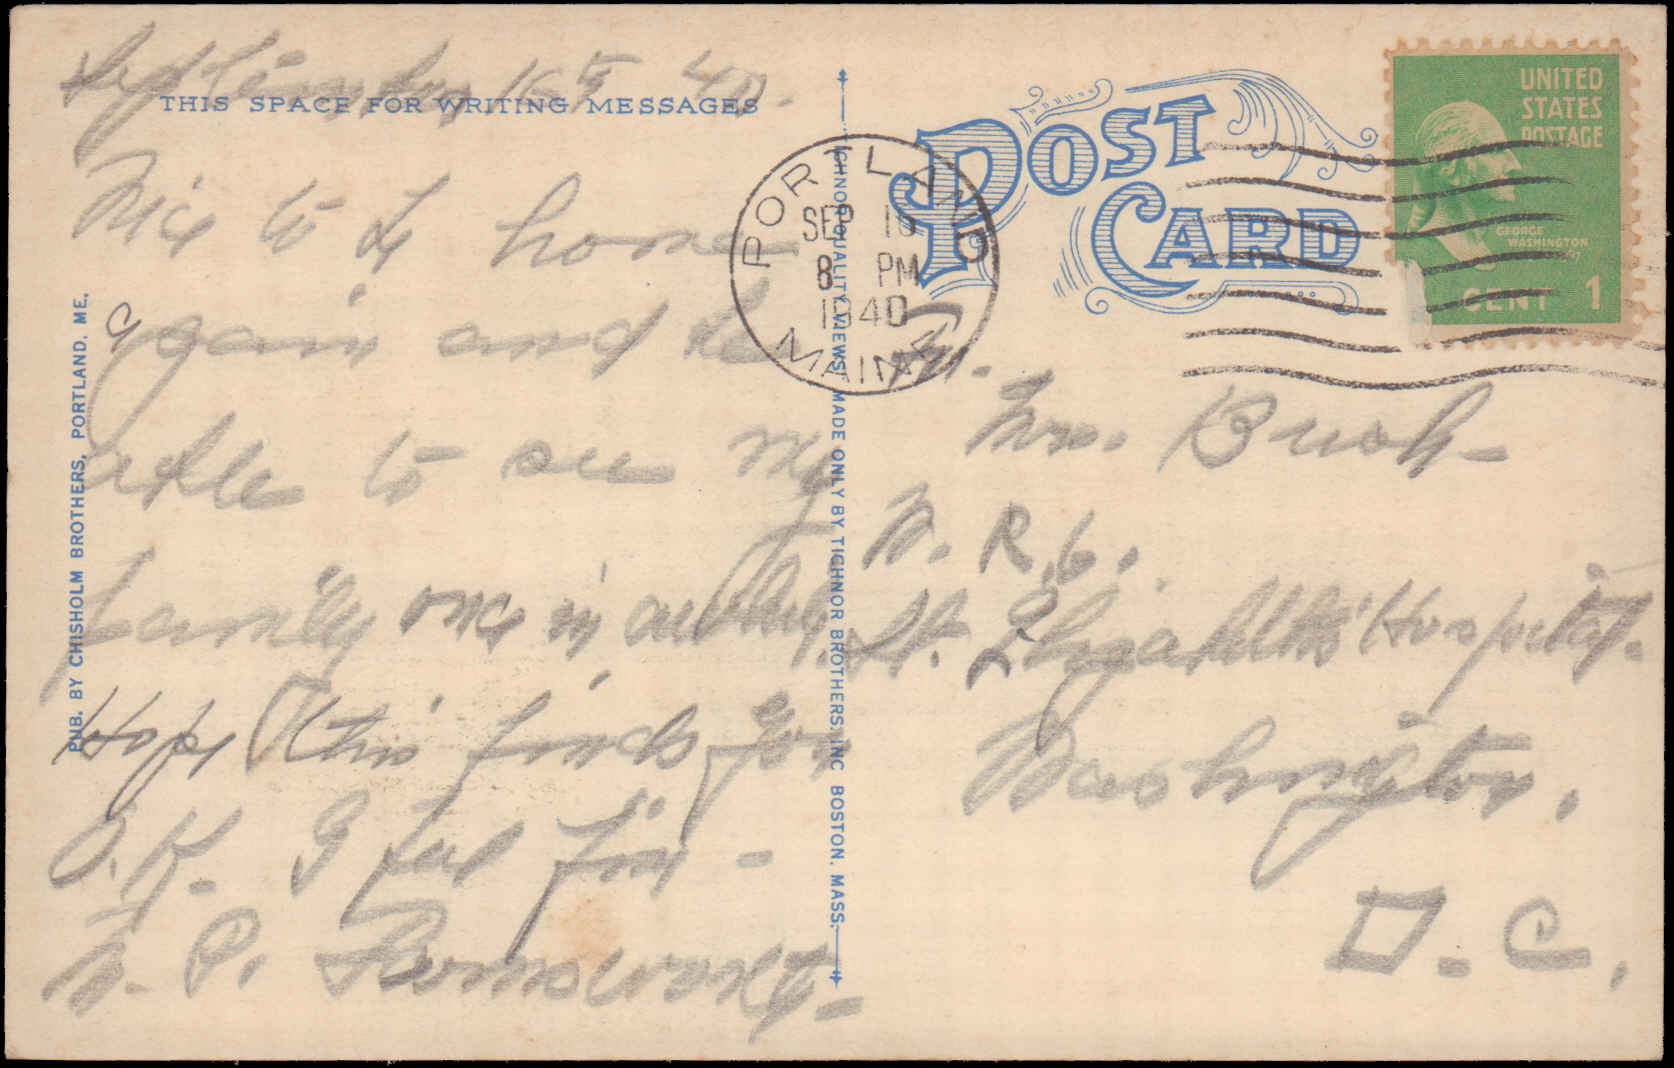 September 16th 40.
THIS SPACE FOR WRITING MESSAGES
Nice to be home
again and be
able to see my
family once in awhile.
Hope this finds you
O.K. I feel fine -
N. P. Farnsworth -
PUB. BY CHISHOLM BROTHERS, PORTLAND, ME.
TICHNOR QUALITY VIEWS MADE ONLY BY TICHNOR BROTHERS, INC BOSTON. MASS.
PORTLAND
SEP 16
8 PM
1940
MAINE
POST
CARD
UNITED
STATES
POSTAGE
GEORGE
WASHINGTON
1 CENT 1
Mrs. Bush -
St. Elizabeth's Hospital.
Washington,
D. C.